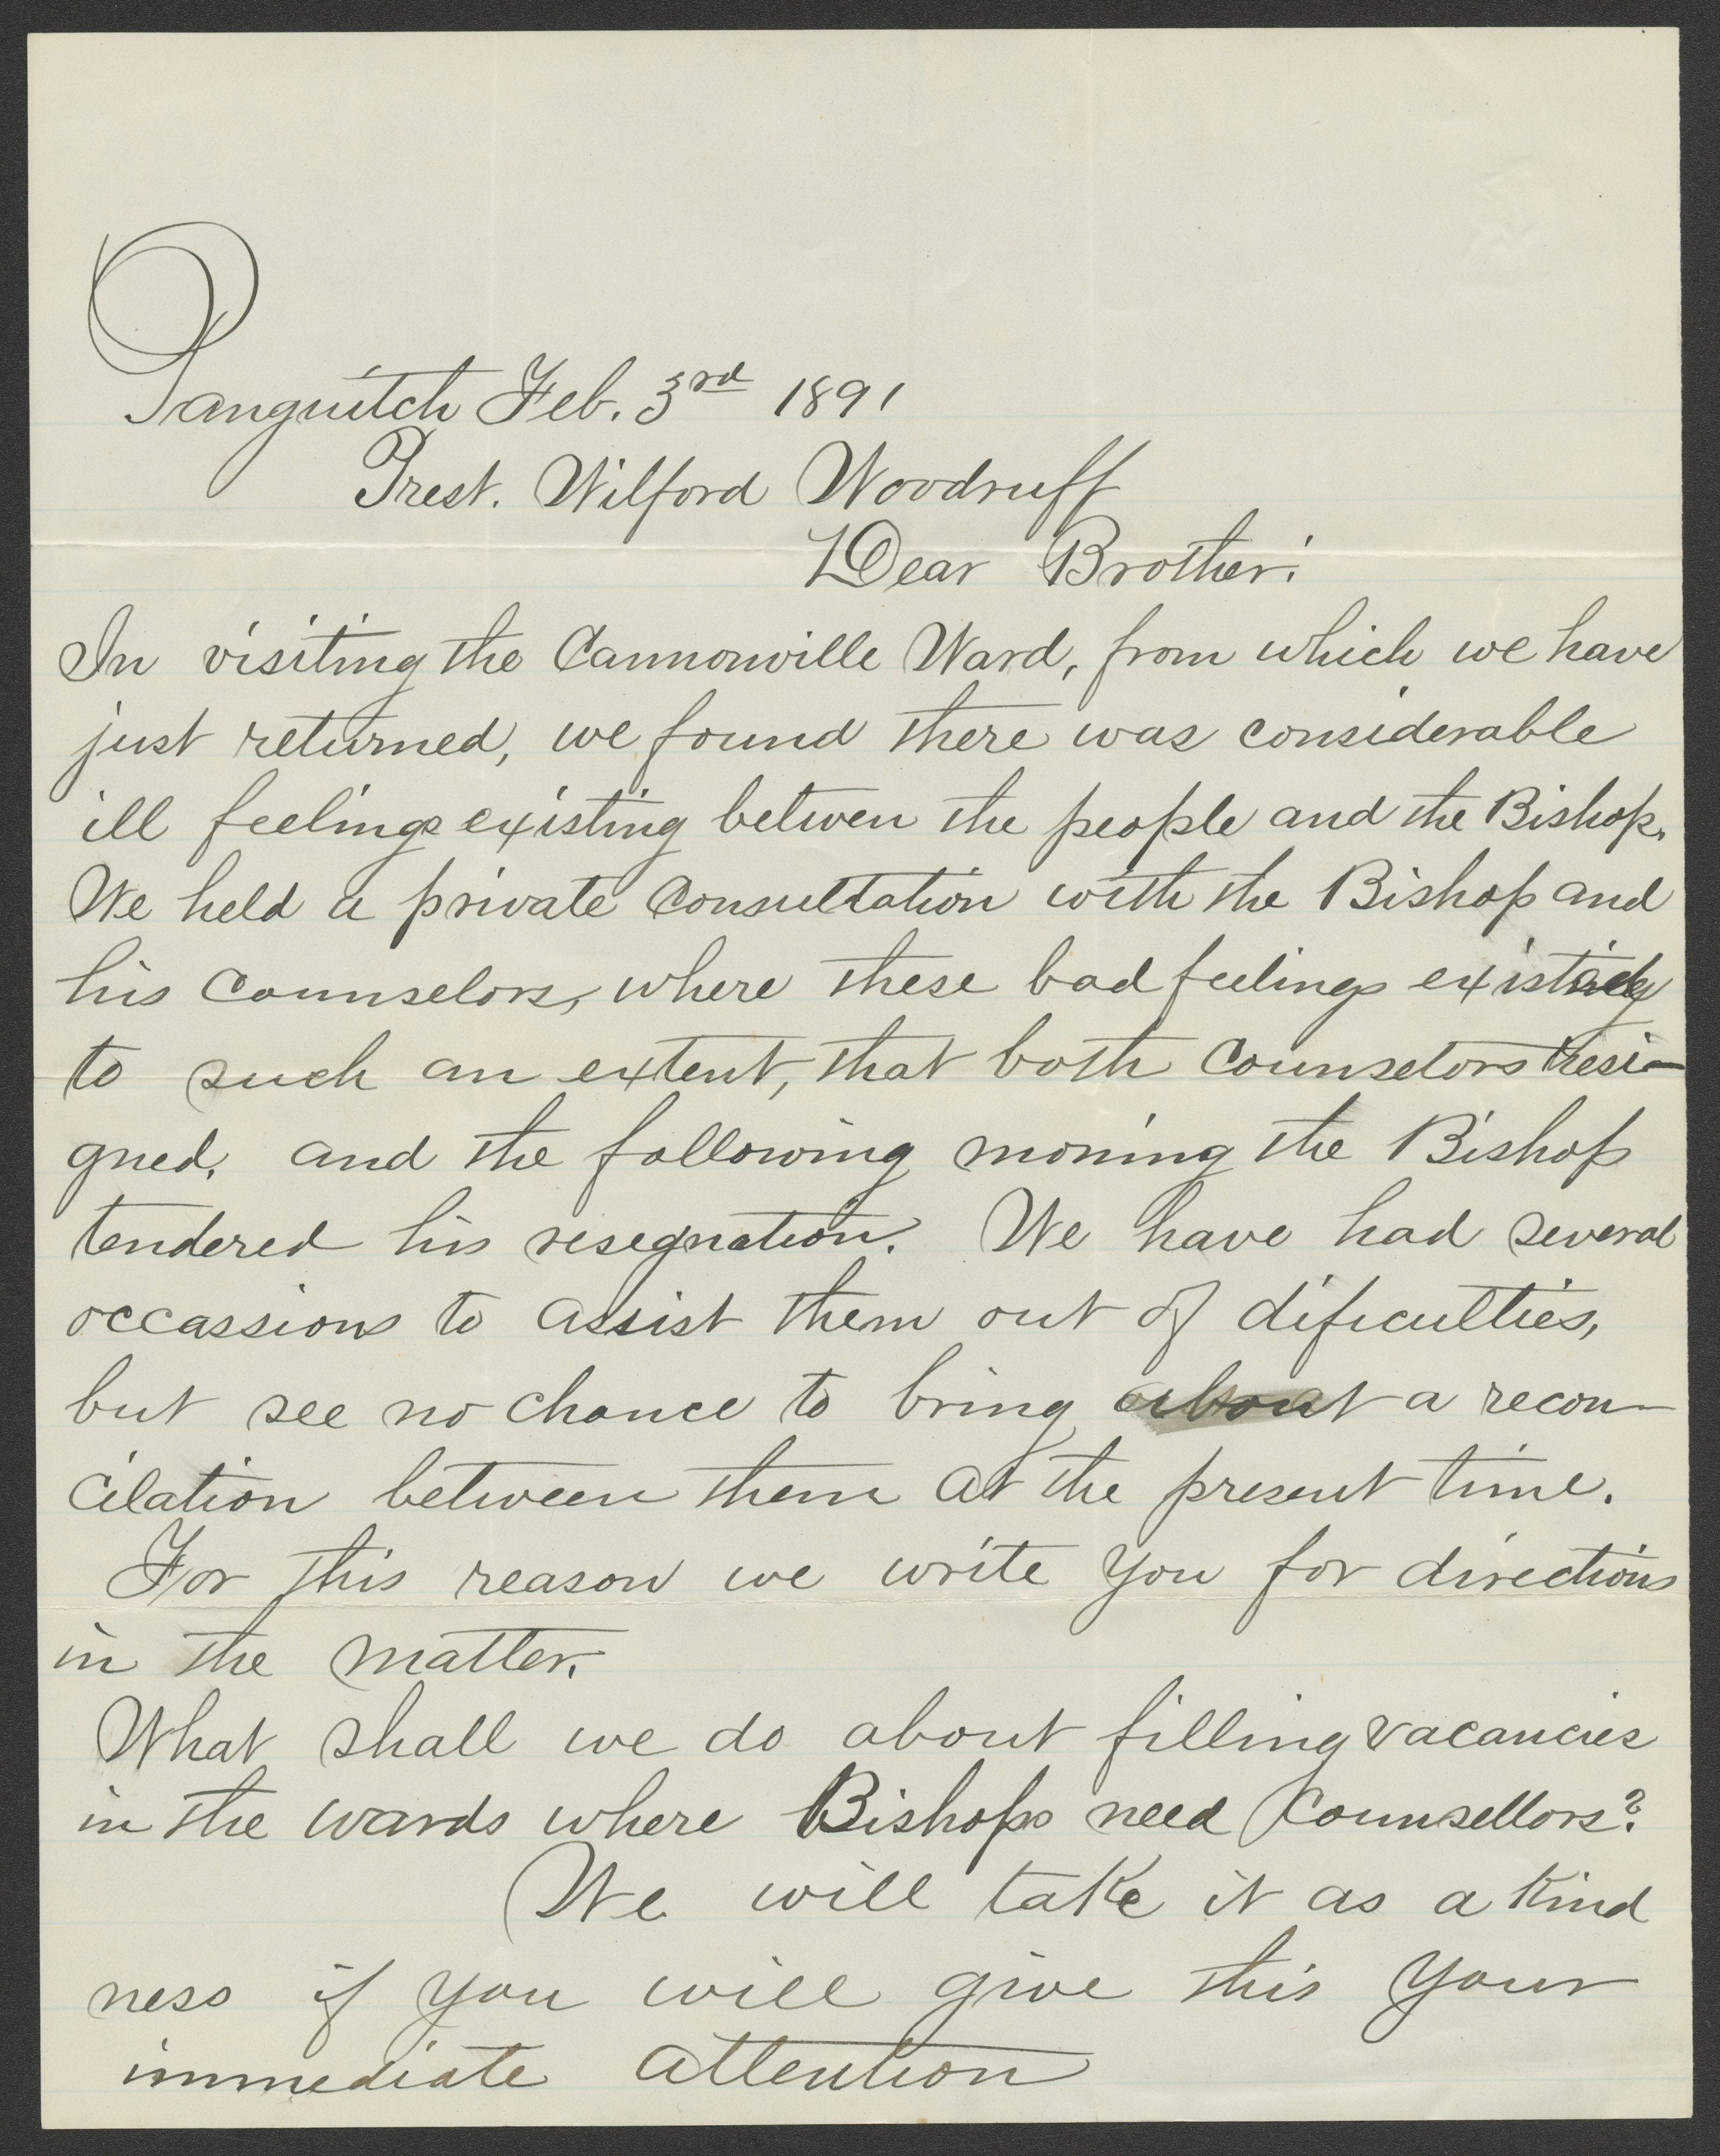 Panguitch Feb. 3rd 1891
Prest. Wilford Woodruff
Dear Brother:
In visiting the Cannonville Ward, from which we have
just returned, we found there was considerable
ill feelings existing betwen the people and the Bishop.
We held a private Consultation with the Bishop and
his Counselors, where these bad feelings existed
to such an extent, that both Counselors resi-
gned, and the following morning the Bishop
tendered his resegnation. We have had several
occassions to assist them out of dificulties,
but see no chance to bring about a recon-
cilation between them at the present time.
For this reason we write you for directions
in the matter.
What shall we do about filling vacancies
in the wards where Bishops need Counsellors?
We will take it as a kind
ness if you will give this your
immediate attention